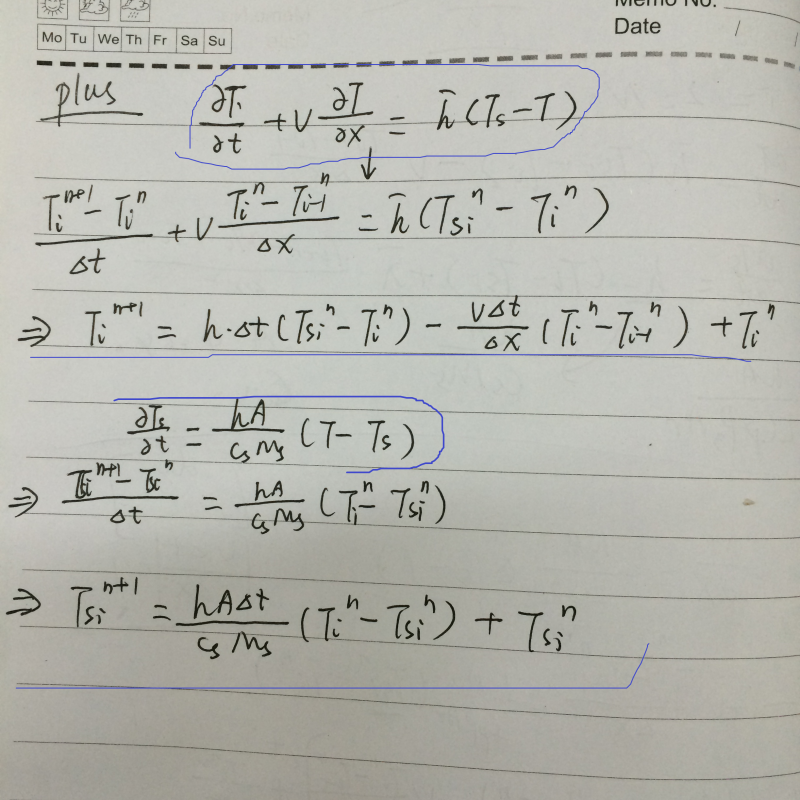 Memo No.
Date / /
Mo Tu We Th Fr Sa Su
plus ∂Ti/∂t + V ∂T/∂x = h̄(Ts − T)
↓
(Ti^(n+1) − Ti^n)/Δt + V (Ti^n − Ti-1^n)/Δx = h̄(Tsi^n − Ti^n)
⇒ Ti^(n+1) = h·Δt(Tsi^n − Ti^n) − VΔt/Δx (Ti^n − Ti-1^n) + Ti^n
∂Ts/∂t = hA/(cs Ms) (T − Ts)
⇒ (Tsi^(n+1) − Tsi^n)/Δt = hA/(cs Ms) (Ti^n − Tsi^n)
⇒ Tsi^(n+1) = hAΔt/(cs Ms) (Ti^n − Tsi^n) + Tsi^n